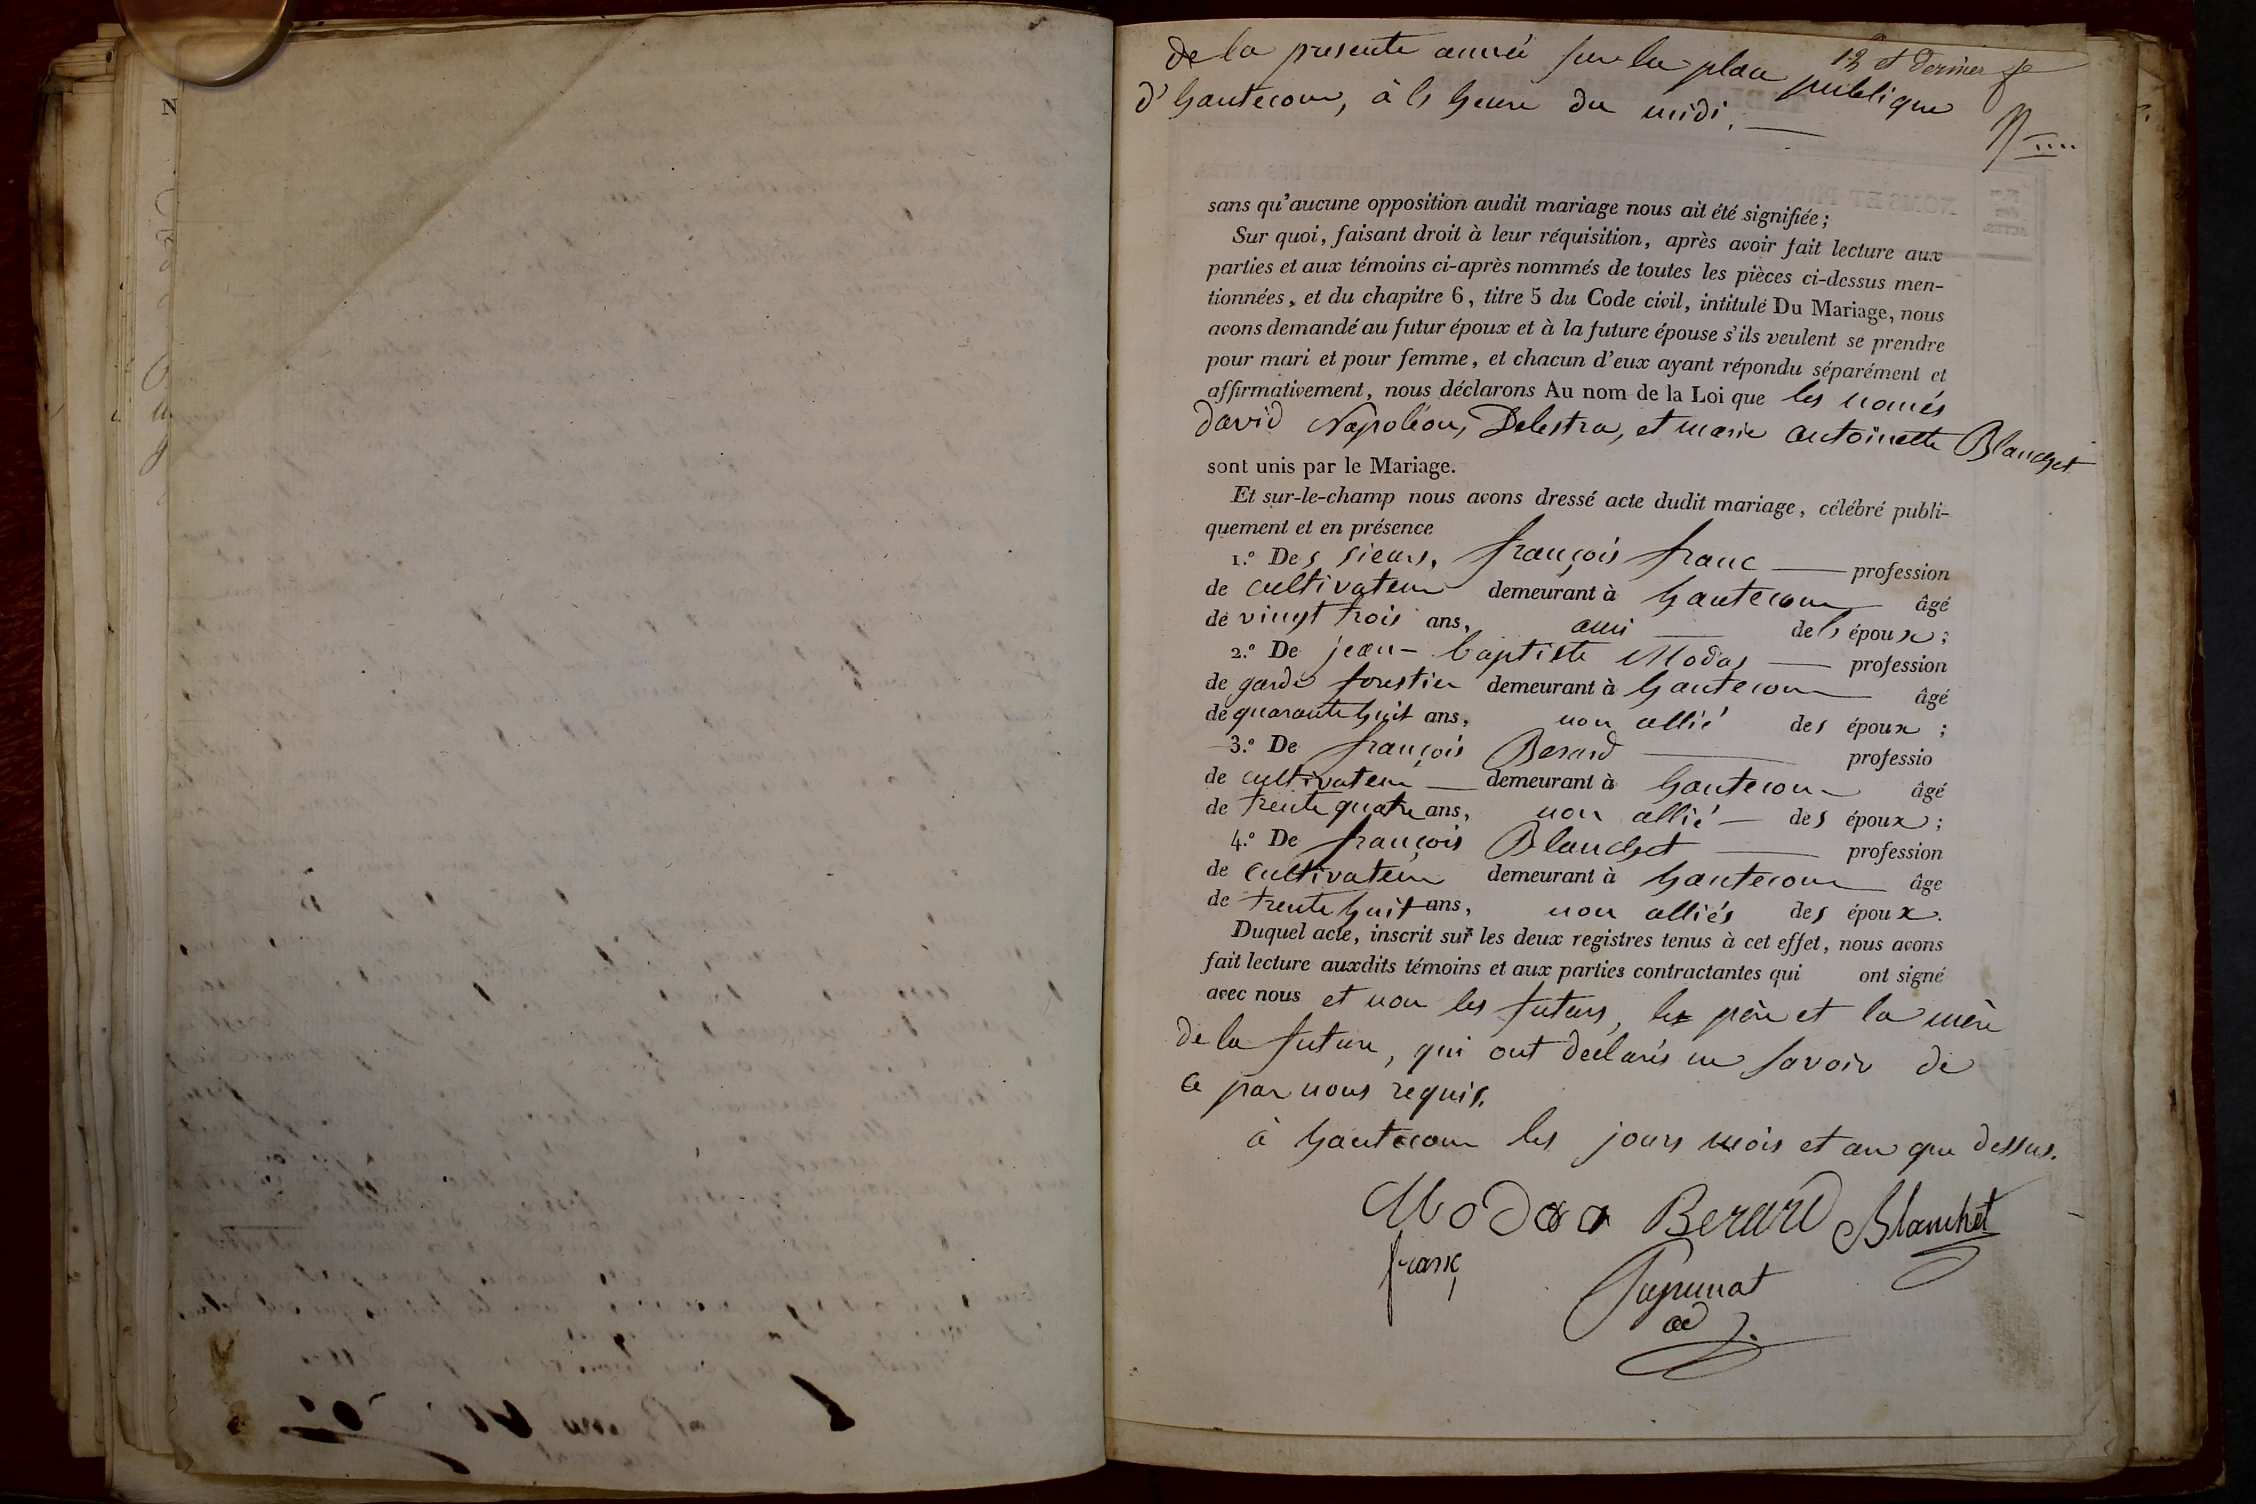 12 et dernier f.
de la presente année sur la place publique
d'hautecour, à ls heure du midi.
sans qu'aucune opposition audit mariage nous ait été signifiée;
Sur quoi, faisant droit à leur réquisition, après avoir fait lecture aux
parties et aux témoins ci-après nommés de toutes les pièces ci-dessus men-
tionnées, et du chapitre 6, titre 5 du Code civil, intitulé Du Mariage, nous
avons demandé au futur époux et à la future épouse s'ils veulent se prendre
pour mari et pour femme, et chacun d'eux ayant répondu séparément et
affirmativement, nous déclarons Au nom de la Loi que les només
david Napoléon, Delestra, et marie antoinette Blanchet
sont unis par le Mariage.
Et sur-le-champ nous avons dressé acte dudit mariage, célébré publi-
quement et en présence
1.º Des sieurs, françois franc profession
de cultivateur demeurant à hautecour âgé
de vingt trois ans, ami dels époux;
2.º De jean-baptiste Modas profession
de garde forestier demeurant à hautecour âgé
de quarante huit ans, non allié des époux;
3.º De françois Berard professio
de cultivateur demeurant à hautecour âgé
de trente quatre ans, non allié des époux;
4.º De françois Blanchet profession
de cultivateur demeurant à hautecour âge
de trente huit ans, non alliés des époux.
Duquel acte, inscrit sur les deux registres tenus à cet effet, nous avons
fait lecture auxdits témoins et aux parties contractantes qui ont signé
avec nous et non les futurs, les père et la mère
de la future, qui ont declarés ne savoir de
ce par nous requis.
à hautecour les jours mois et an que dessus.
Modas Berard Blanchet
franc
ad